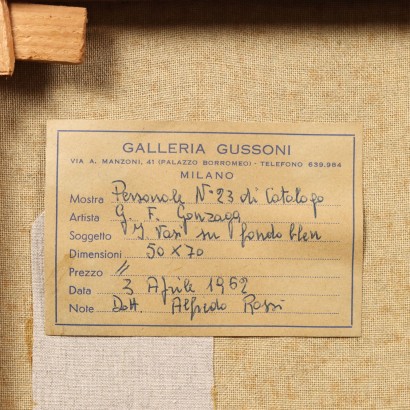 GALLERIA GUSSONI
VIA A. MANZONI, 41 (PALAZZO BORROMEO) - TELEFONO 639.964
MILANO
Mostra Personale N° 23 di Catalogo
Artista G. F. Gonzaga
Soggetto I Vasi su fondo bleu
Dimensioni 50 x 70
Prezzo //
Data 3 Aprile 1962
Note Dott. Alfredo Rossi